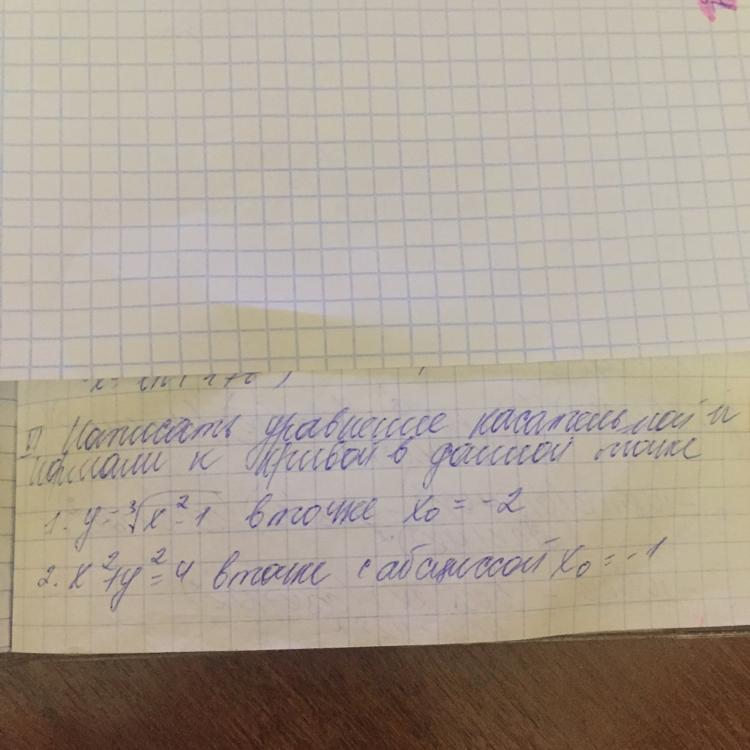 II Написать уравнение касательной и
нормали к кривой в данной точке
1. y = ∛x² - 1 в точке x₀ = -2
2. x² + y² = 4 в точке с абсциссой x₀ = -1